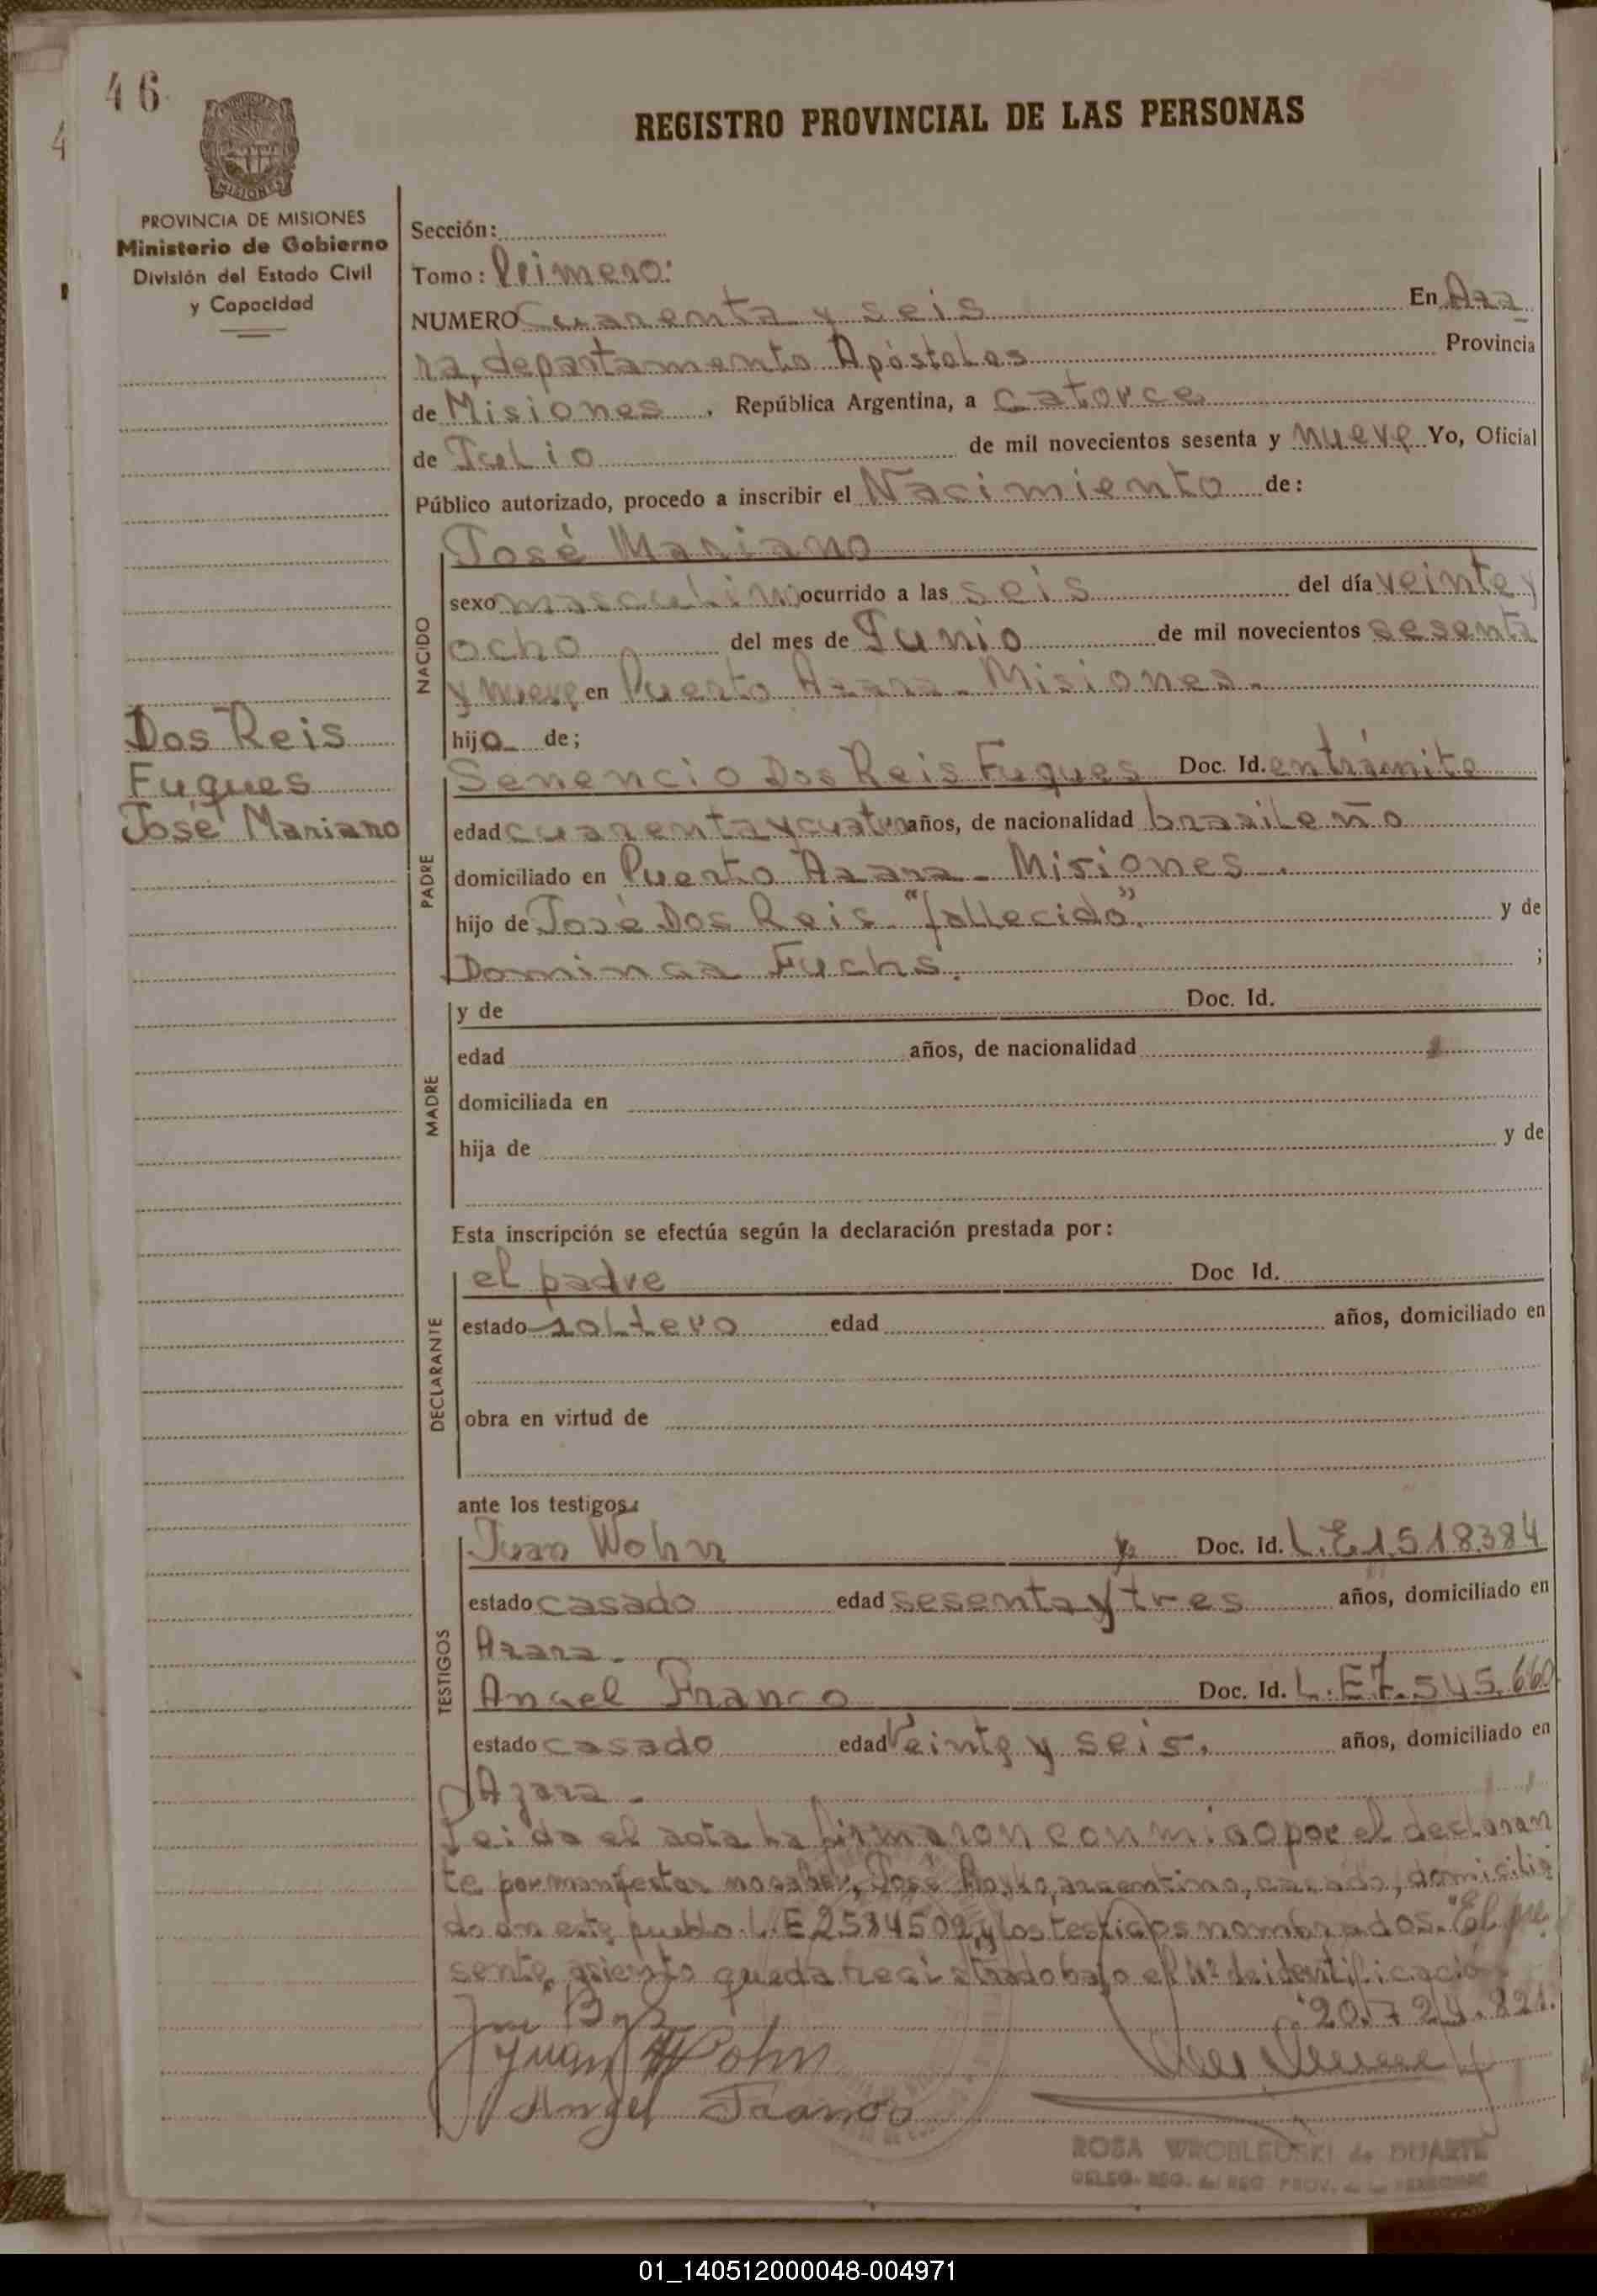 46
4
MISIONES
PROVINCIA DE MISIONES
Ministerio de Gobierno
División del Estado Civil
y Capacidad
REGISTRO PROVINCIAL DE LAS PERSONAS
Sección:
Tomo: Primero:
NUMERO Cuarenta y seis En Aza
ra, departamento Apóstoles Provincia
de Misiones, República Argentina, a catorce
de Julio de mil novecientos sesenta y nueve Yo, Oficial
Público autorizado, procedo a inscribir el Nacimiento de:
José Mariano
sexo masculino ocurrido a las seis del día veinte y
ocho del mes de Junio de mil novecientos sesenta
y nueve en Puerto Azara - Misiones.
hijo de;
NACIDO
Dos Reis
Fuques
José Mariano
Senencio Dos Reis Fuques Doc. Id. entrámite
edad cuarenta y cuatro años, de nacionalidad brasileño
domiciliado en Puerto Azara - Misiones.
hijo de José Dos Reis "fallecido". y de
Dominga Fuchs. ;
PADRE
y de Doc. Id.
edad años, de nacionalidad
domiciliada en
hija de y de
MADRE
Esta inscripción se efectúa según la declaración prestada por:
el padre Doc Id.
estado soltero edad años, domiciliado en
obra en virtud de
DECLARANTE
ante los testigos:
Juan Wohn y Doc. Id. L.E.1.518.384
estado casado edad sesenta y tres años, domiciliado en
Azara.
Angel Franco Doc. Id. L.E 7.545.660
estado casado edad Veinte y seis. años, domiciliado en
Azara -
TESTIGOS
Leida el acta la firmaron conmigo por el declaran
te por manifestar no saber, José argentino, casado, domicilia
do en este pueblo L.E 2534502, y los testigos nombrados. "El pre
sente asiento queda registrado bajo el Nº de identificación
20.724.821.
Juan Wohn
Angel Franco
ROSA WROBLEUSKI de DUARTE
DELEG. REG. del REG PROV. de las PERSONAS
01_140512000048-004971